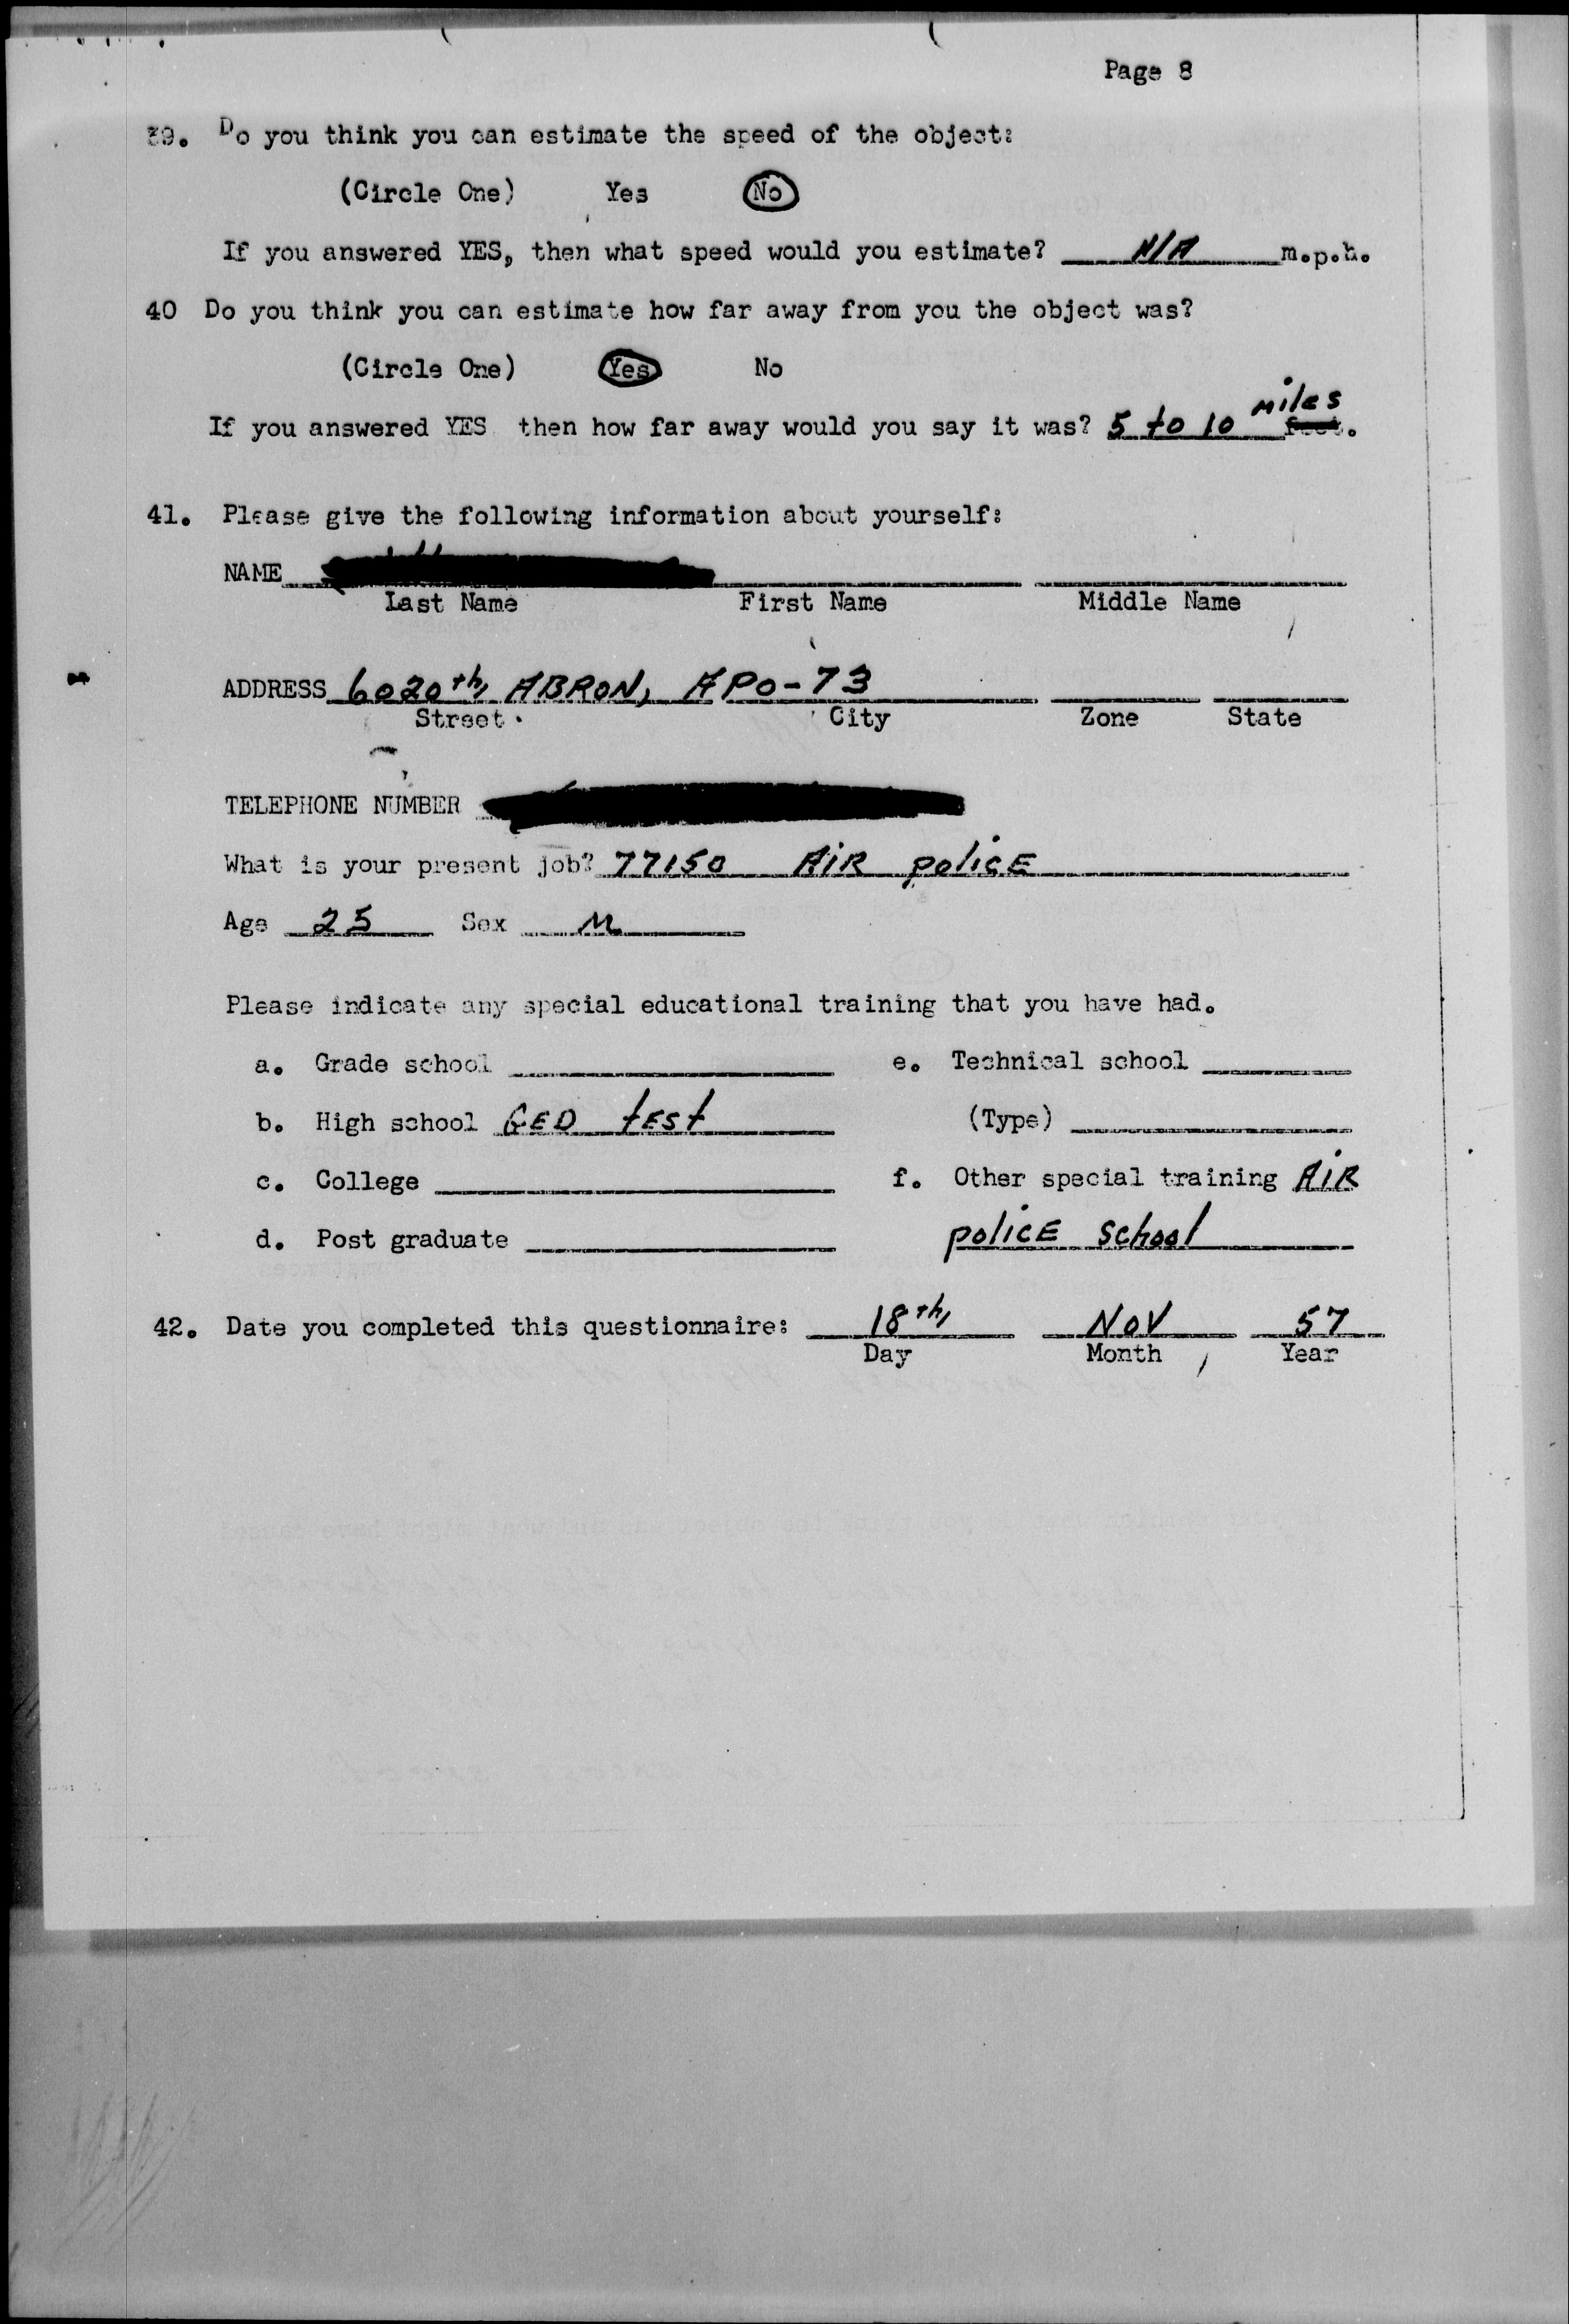 Page 8
39. Do you think you can estimate the speed of the object:
(Circle One) Yes No
If you answered YES, then what speed would you estimate? N/A m.p.h.
40 Do you think you can estimate how far away from you the object was?
(Circle One) Yes No
If you answered YES then how far away would you say it was? 5 to 10 miles feet.
41. Please give the following information about yourself:
NAME
Last Name First Name Middle Name
ADDRESS 6020th, ABRON, APO-73
Street City Zone State
TELEPHONE NUMBER
What is your present job? 77150 AiR policE
Age 25 Sex M
Please indicate any special educational training that you have had.
a. Grade school e. Technical school
b. High school GED tEst (Type)
c. College f. Other special training AiR
d. Post graduate policE school
42. Date you completed this questionnaire: 18th, Nov 57
Day Month Year